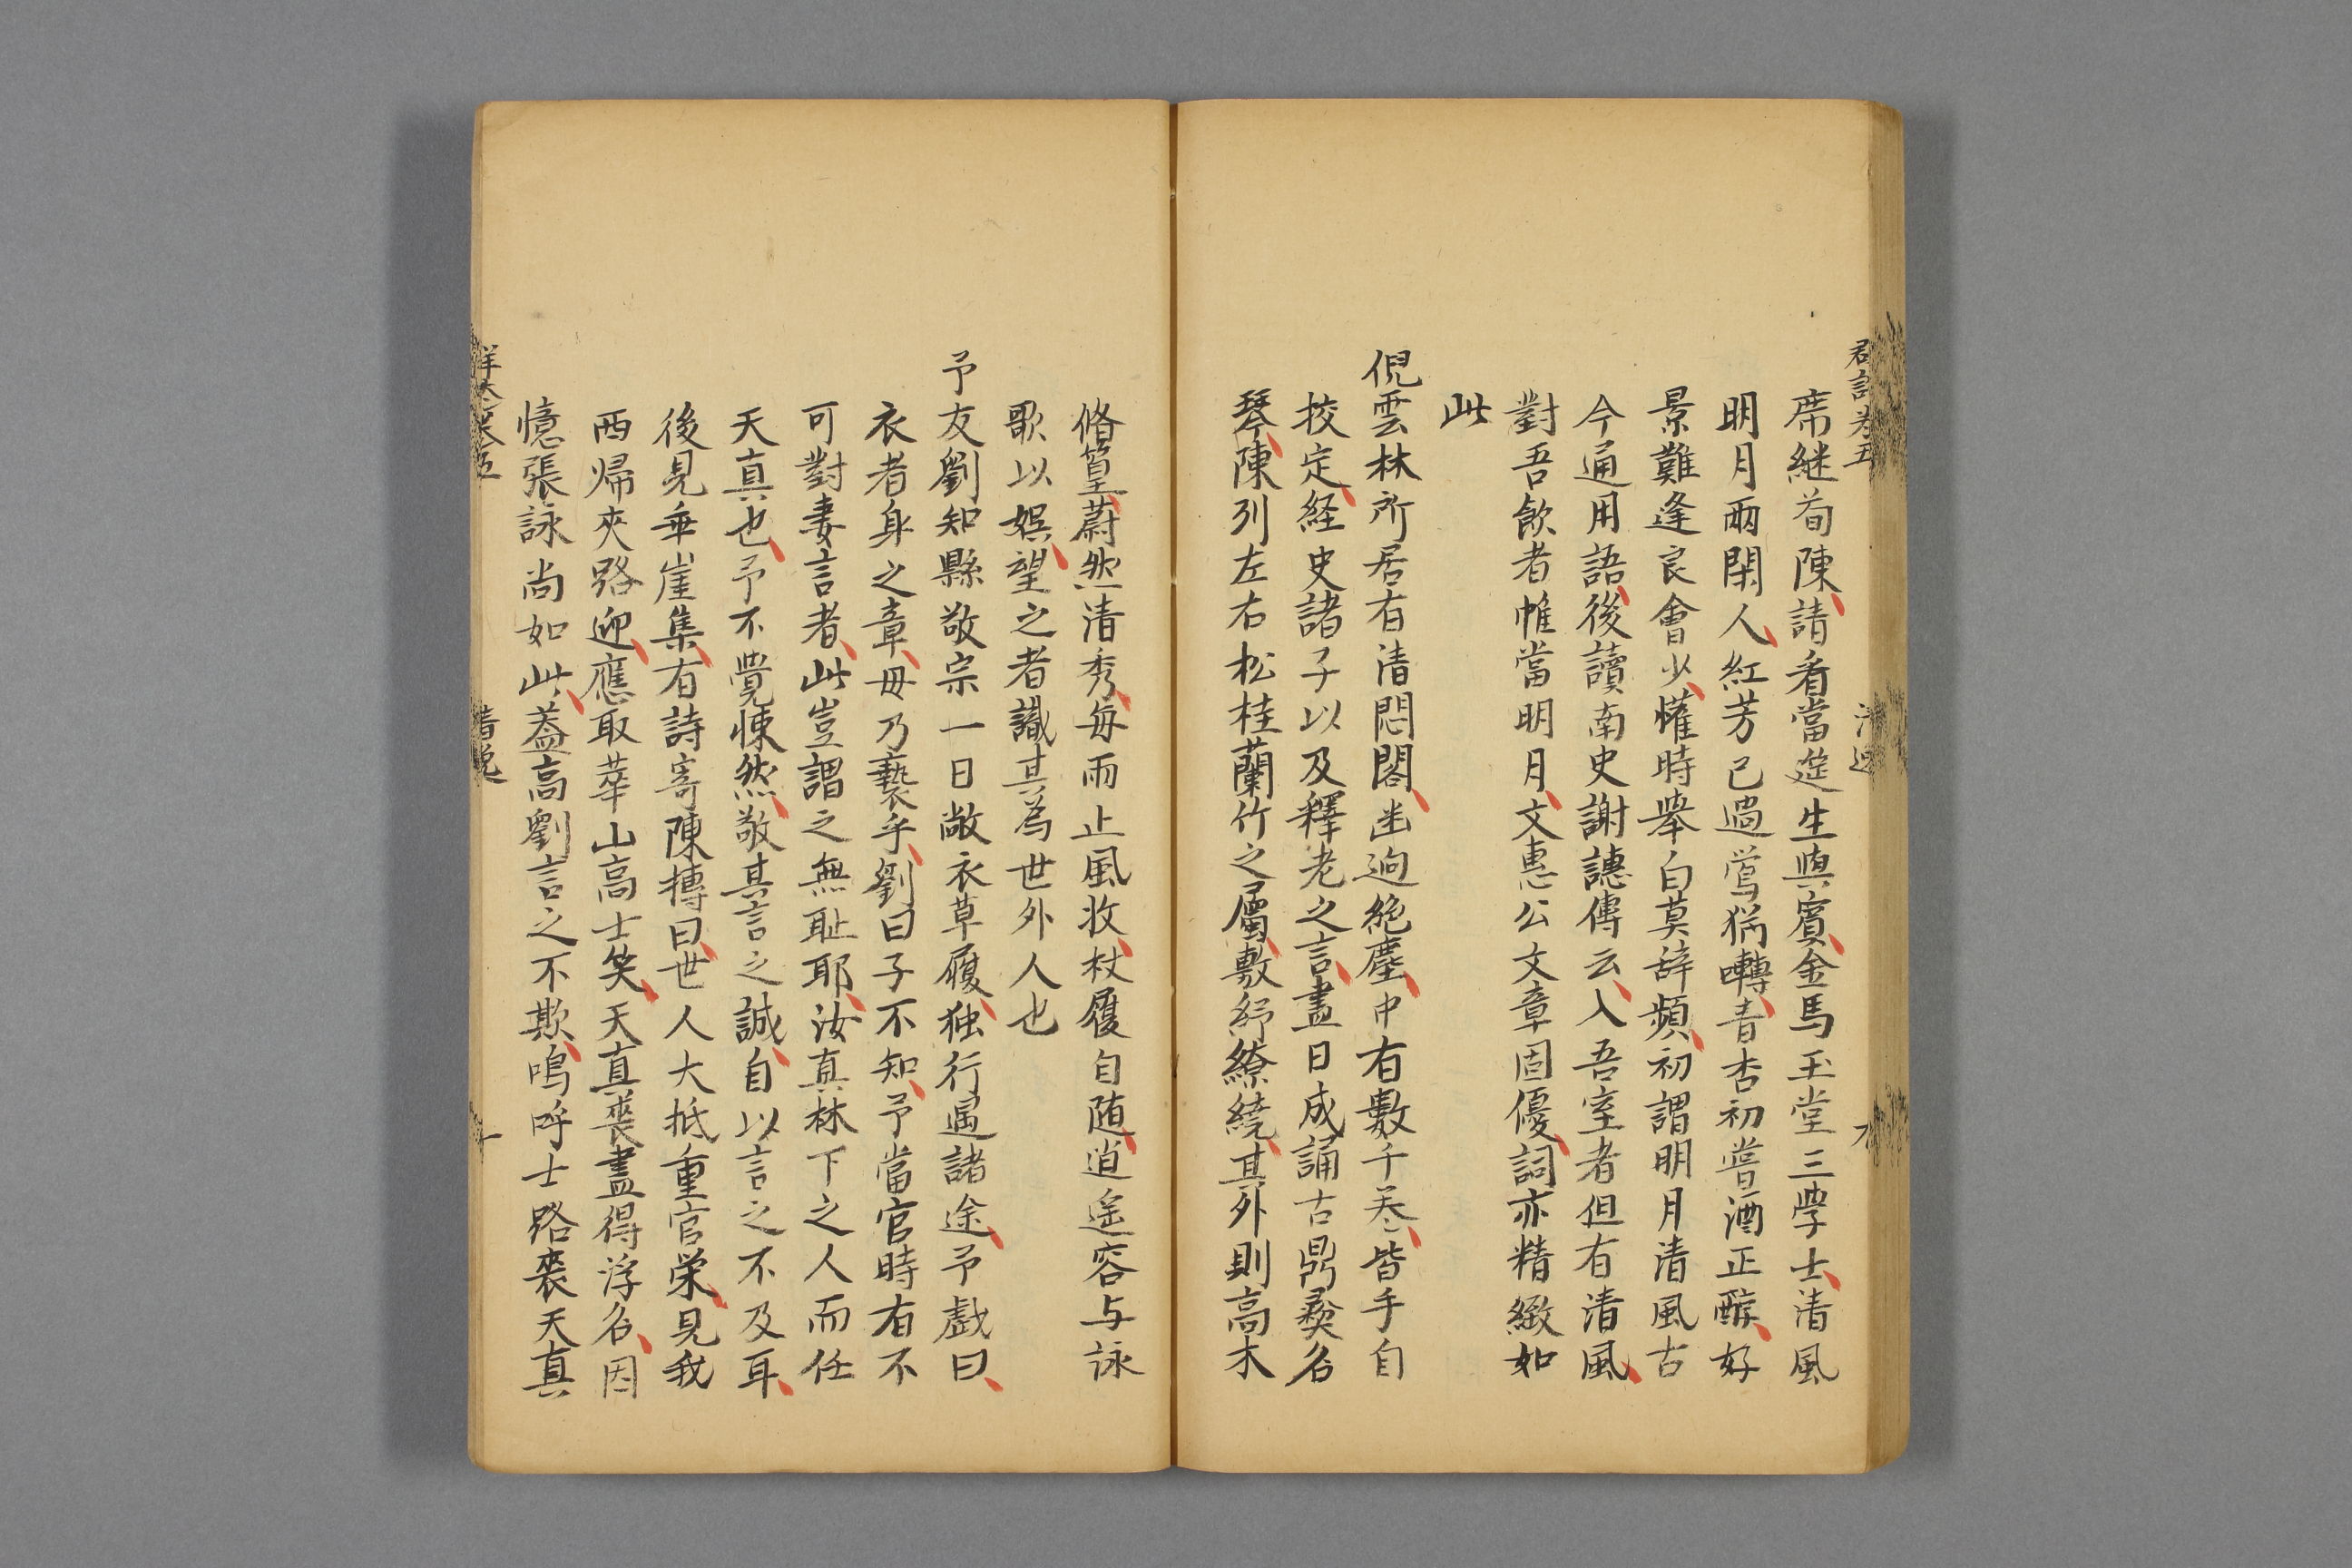 席継荀陳請看當筵生與賓金馬玉堂三學士清風
明月兩閑人紅芳已過鶯猶囀青杏初嘗酒正醉好
景難逢良會少懽時舉白莫辞頻初謂明月清風古
今通用語後讀南史謝譓傳云入吾室者但有清風
對吾飲者惟當明月文惠公文章固優詞亦精緻如
此
倪雲林所居有清閟閣幽逈絶塵中有數千卷皆手自
挍定経史諸子以及釋老之言盡日成誦古鼎彞名
琴陳列左右松桂蘭竹之屬敷紓繚繞其外則高木
脩篁蔚然清秀每雨止風收杖履自随逍遥容与詠
歌以娯望之者識其為世外人也
予友劉知縣敬宗一日敝衣草履独行遇諸途予戲曰
衣者身之章毋乃褻乎劉曰子不知予當官時有不
可對妻言者此豈謂之無耻耶汝真林下之人而任
天真也予不覺悚然敬其言之誠自以言之不及耳
後見乖崖集有詩寄陳摶曰世人大抵重官栄見我
西帰夾路迎應取華山高士笑天真喪盡得浮名因
憶張詠尚如此蓋高劉言之不欺嗚呼士路喪天真